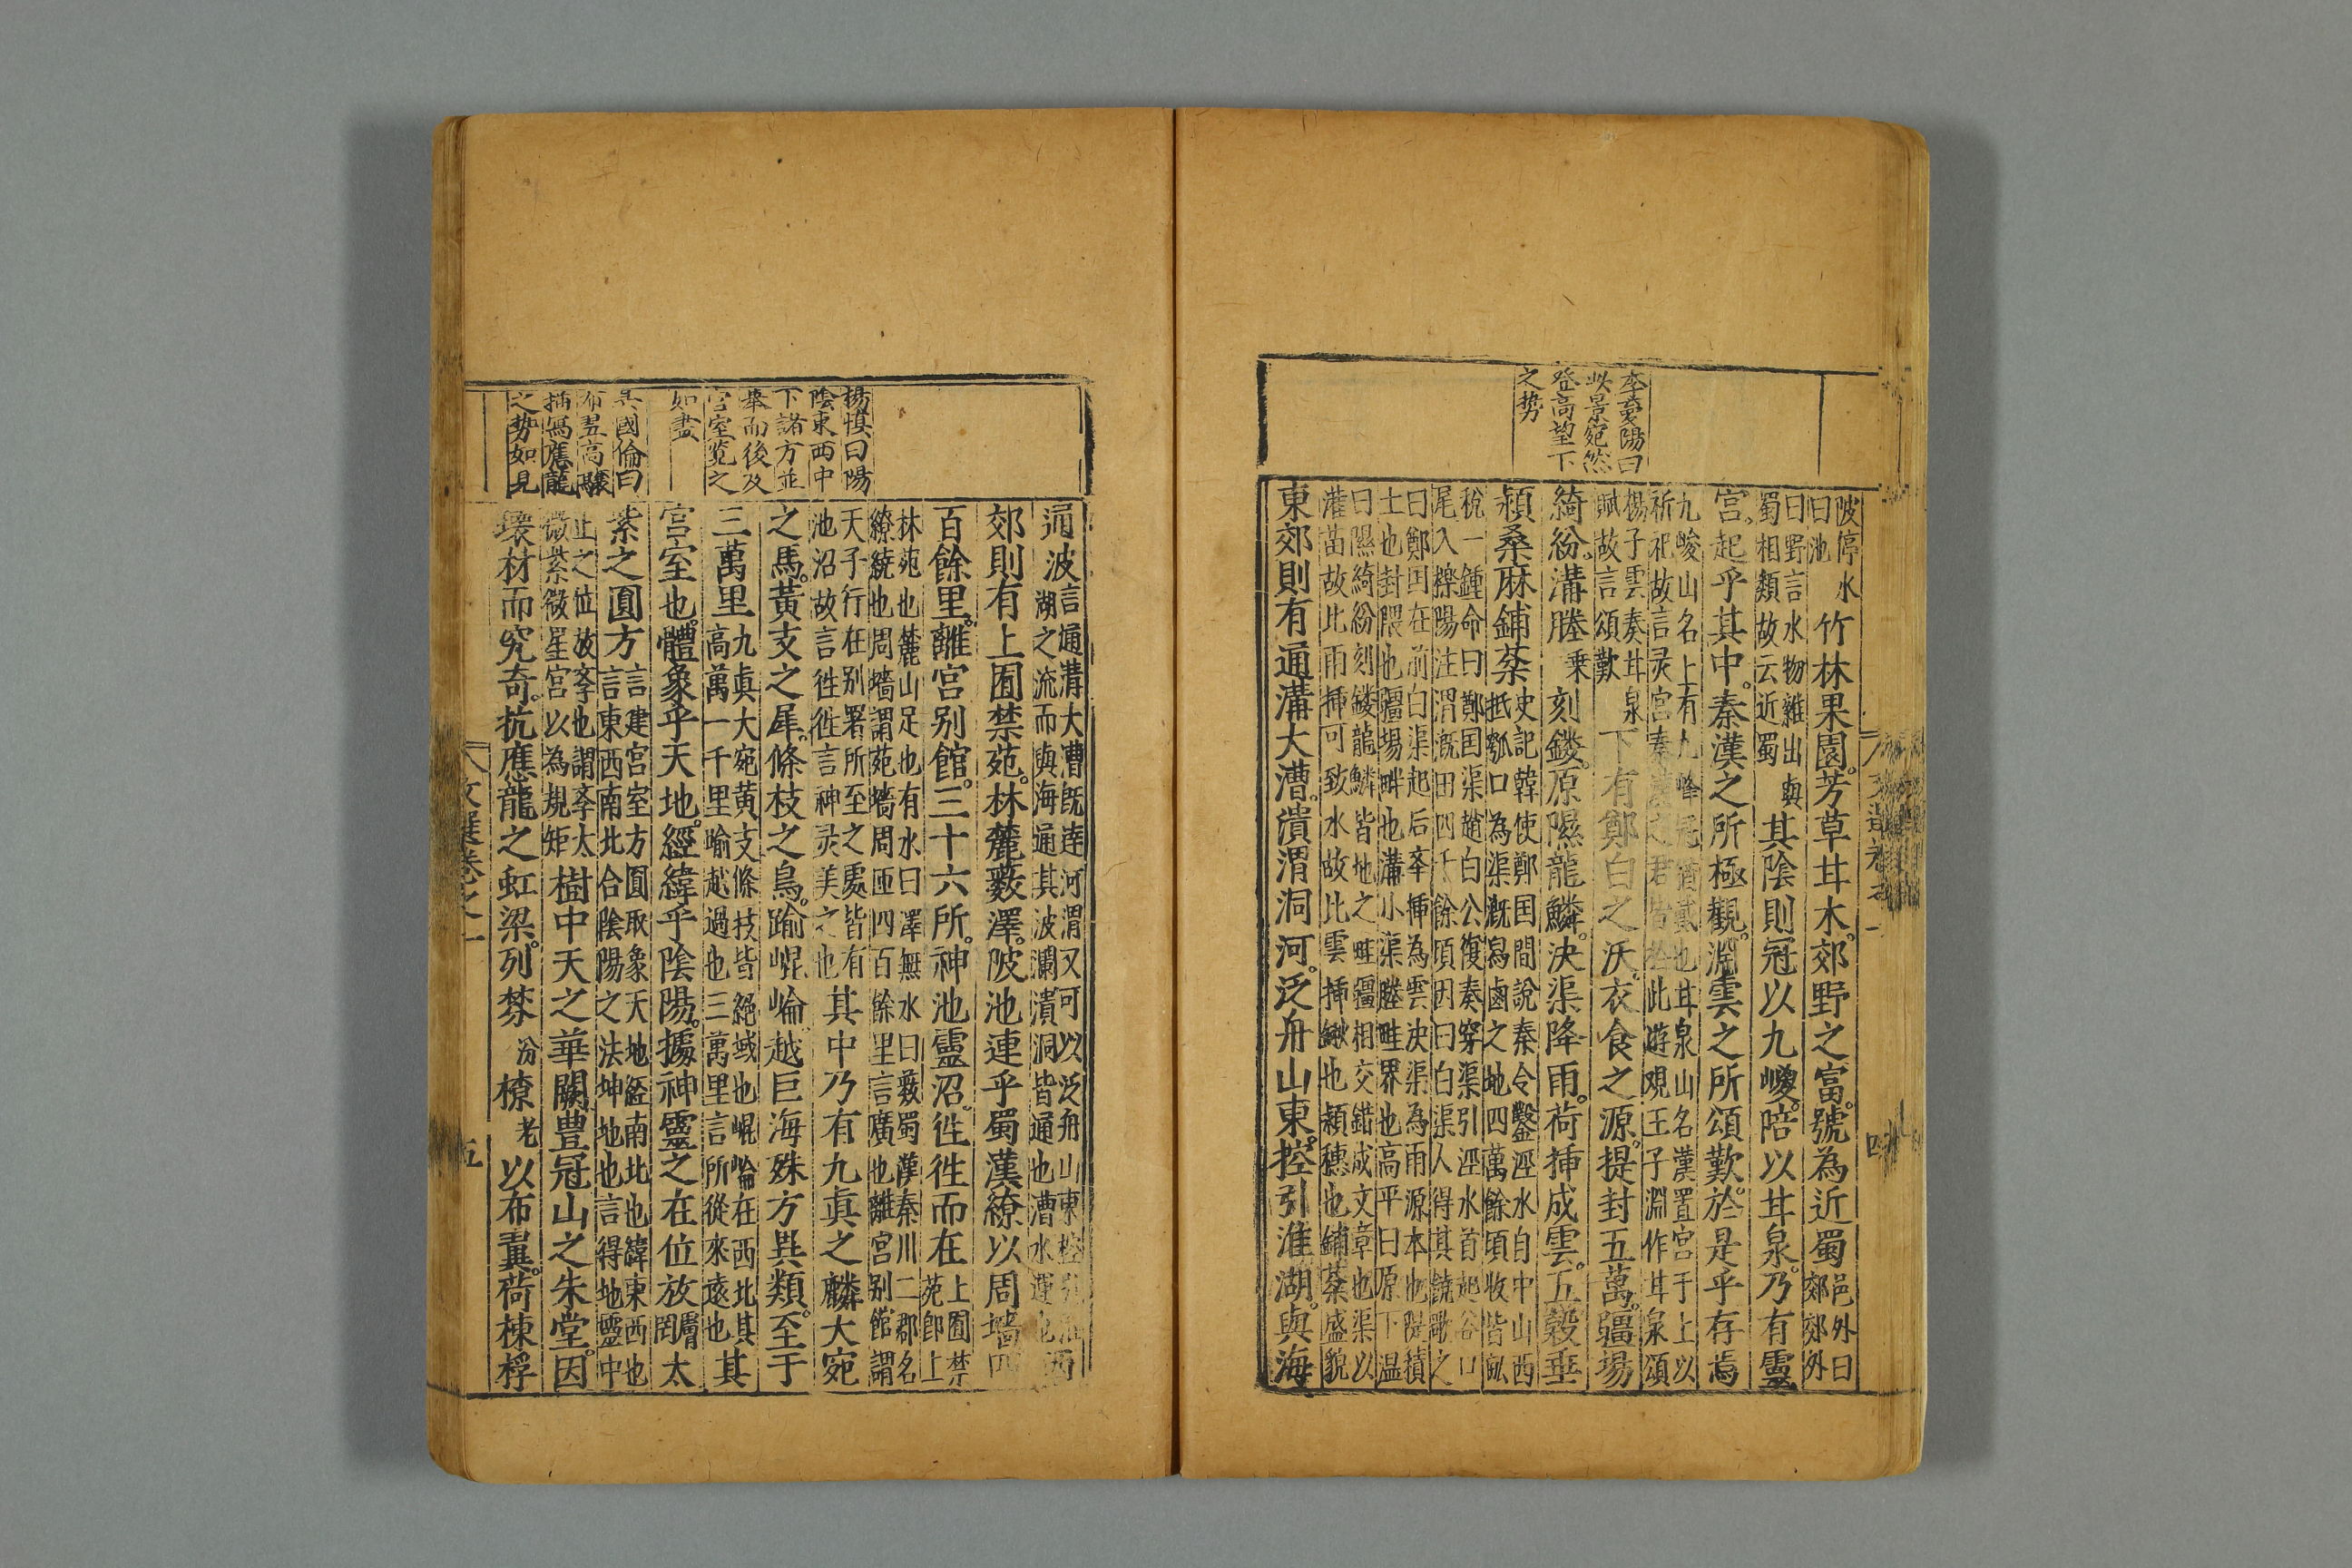 李蔓陽曰
此景宛然
登高望下
之勢
陂停水
曰池
竹林果園芳草甘木郊野之富號為近蜀
邑外曰
郊郊外
曰野言水物雜出與
蜀相類故云近蜀
其陰則冠以九嵕陪以甘泉乃有靈
宮起乎其中秦漢之所極觀淵雲之所頌歎於是乎存焉
九嵕山名上有九峰冠猶戴也甘泉山名漢置宮于上以
祈祀故言灵宮秦漢之君皆於此遊观王子淵作甘泉頌
楊子雲奏甘泉
賦故言頌歎
下有鄭白之沃衣食之源提封五萬疆埸
綺紛溝塍乘刻鏤原隰龍鱗決渠降雨荷挿成雲五穀垂
頴桑麻鋪棻
史記韓使鄭囯間說秦令鑿涇水自中山西
抵瓠口為渠溉舄鹵之地四萬餘頃收皆畝
稅一鍾命曰鄭囯渠趙白公復奏穿渠引涇水首起谷口
尾入櫟陽注渭溉田四千餘頃因曰白渠人得其饒歌之
曰鄭囯在前白渠起后奉挿為雲決渠為雨源本也隄積
土也封隈也疆埸畔也溝小渠塍畦界也高平曰原下温
曰隰綺紛刻鏤龍鱗皆地之畦疆相交錯成文章也渠以
灌苗故比雨挿可致水故比雲挿鍬也頴穗也鋪棻盛貌
東郊則有通溝大漕潰渭洞河泛舟山東控引淮湖與海
四
楊慎曰陽
陰東西中
下諸方並
舉而後及
宮室览之
如畫
吳國倫曰
布翼高驤
描寫應龍
之勢如見
通波
言通溝大漕既達河渭又可以泛舟山東控引淮
湖之流而與海通其波瀾潰洞皆通也漕水運也
西
郊則有上囿禁苑林麓藪澤陂池連乎蜀漢繚以周墻四
百餘里離宮別館三十六所神池靈沼徃徃而在
上囿禁
苑卽上
林苑也麓山足也有水曰澤無水曰藪蜀漢秦川二郡名
繚繞也周墻謂苑墻周匝四百餘里言廣也離宮别館謂
天子行在别署所至之處皆有
池沼故言徃徃言神灵美之也
其中乃有九真之麟大宛
之馬黃支之犀條枝之鳥踰崐崘越巨海殊方異類至于
三萬里
九真大宛黄支條技皆絕域也崐崘在西北其
高萬一千里喻越過也三萬里言所從來遠也
其
宮室也體象乎天地經緯乎陰陽據神靈之在位放太
紫之圓方
言建宮室方圓取象天地經南北也緯東西也
言東西南北合陰陽之法坤地也言得地靈中
止之位故孝也謂孝太
微紫微星宮以為規矩
樹中天之華闕豊冠山之朱堂因
壞材而究奇抗應龍之虹梁列棼汾橑老以布翼荷棟桴
文選卷之一
五